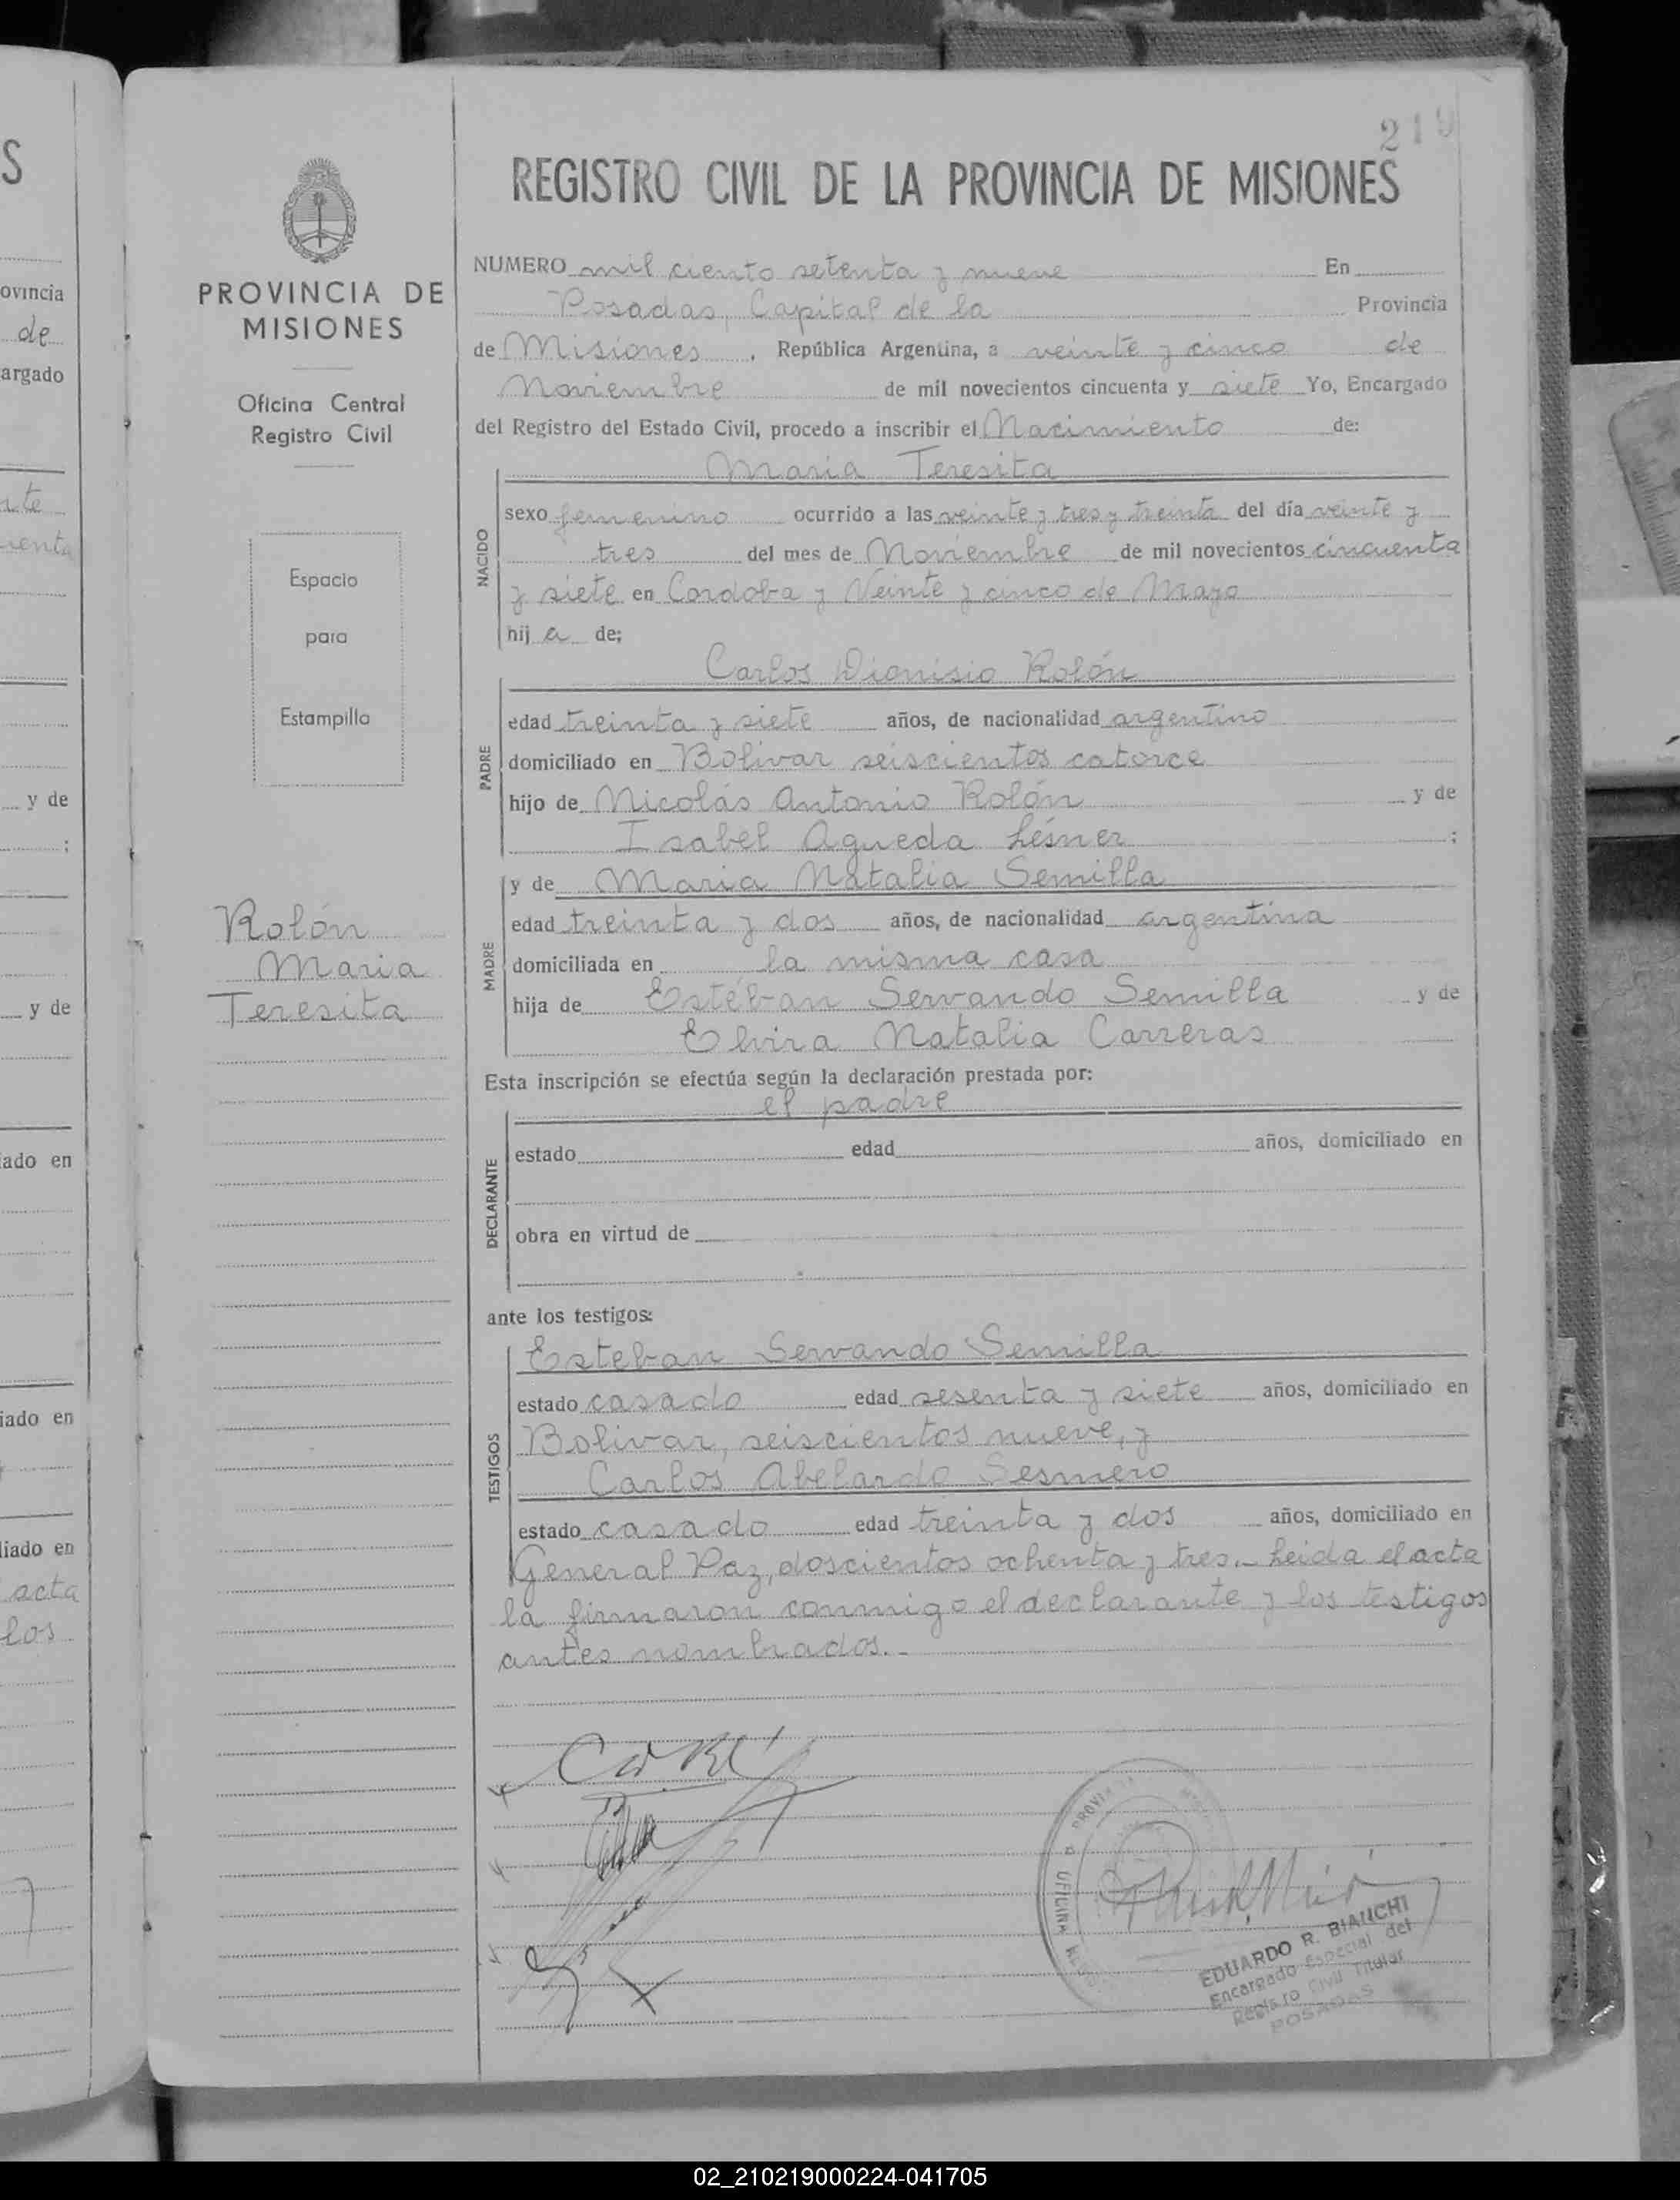 219
REGISTRO CIVIL DE LA PROVINCIA DE MISIONES
PROVINCIA DE
MISIONES
Oficina Central
Registro Civil
Espacio
para
Estampilla
Rolón
Maria
Teresita
NUMERO mil ciento setenta y nueve En
Posadas, Capital de la Provincia
de Misiones, República Argentina, a veinte y cinco de
Noviembre de mil novecientos cincuenta y siete Yo, Encargado
del Registro del Estado Civil, procedo a inscribir el Nacimiento de:
Maria Teresita
NACIDO
sexo femenino ocurrido a las veinte y tres y treinta del día veinte y
tres del mes de Noviembre de mil novecientos cincuenta
y siete en Cordoba y Veinte y cinco de Mayo
hij a de;
Carlos Dionisio Rolón
PADRE
edad treinta y siete años, de nacionalidad argentino
domiciliado en Bolivar seiscientos catorce
hijo de Nicolás Antonio Rolón y de
Isabel Agueda Lésner ;
MADRE
y de Maria Natalia Semilla
edad treinta y dos años, de nacionalidad argentina
domiciliada en la misma casa
hija de Estéban Servando Semilla y de
Elvira Natalia Carreras
Esta inscripción se efectúa según la declaración prestada por:
el padre
DECLARANTE
estado edad años, domiciliado en
obra en virtud de
ante los testigos:
Esteban Servando Semilla
TESTIGOS
estado casado edad sesenta y siete años, domiciliado en
Bolivar, seiscientos nueve, y
Carlos Abelardo Sesmero
estado casado edad treinta y dos años, domiciliado en
General Paz, doscientos ochenta y tres.- Leida el acta
la firmaron conmigo el declarante y los testigos
antes nombrados.-
EDUARDO R. BIANCHI
Encargado Especial del
Registro Civil Titular
POSADAS
S
ovincia
de
argado
y de
y de
iado en
iado en
liado en
acta
los
02_210219000224-041705